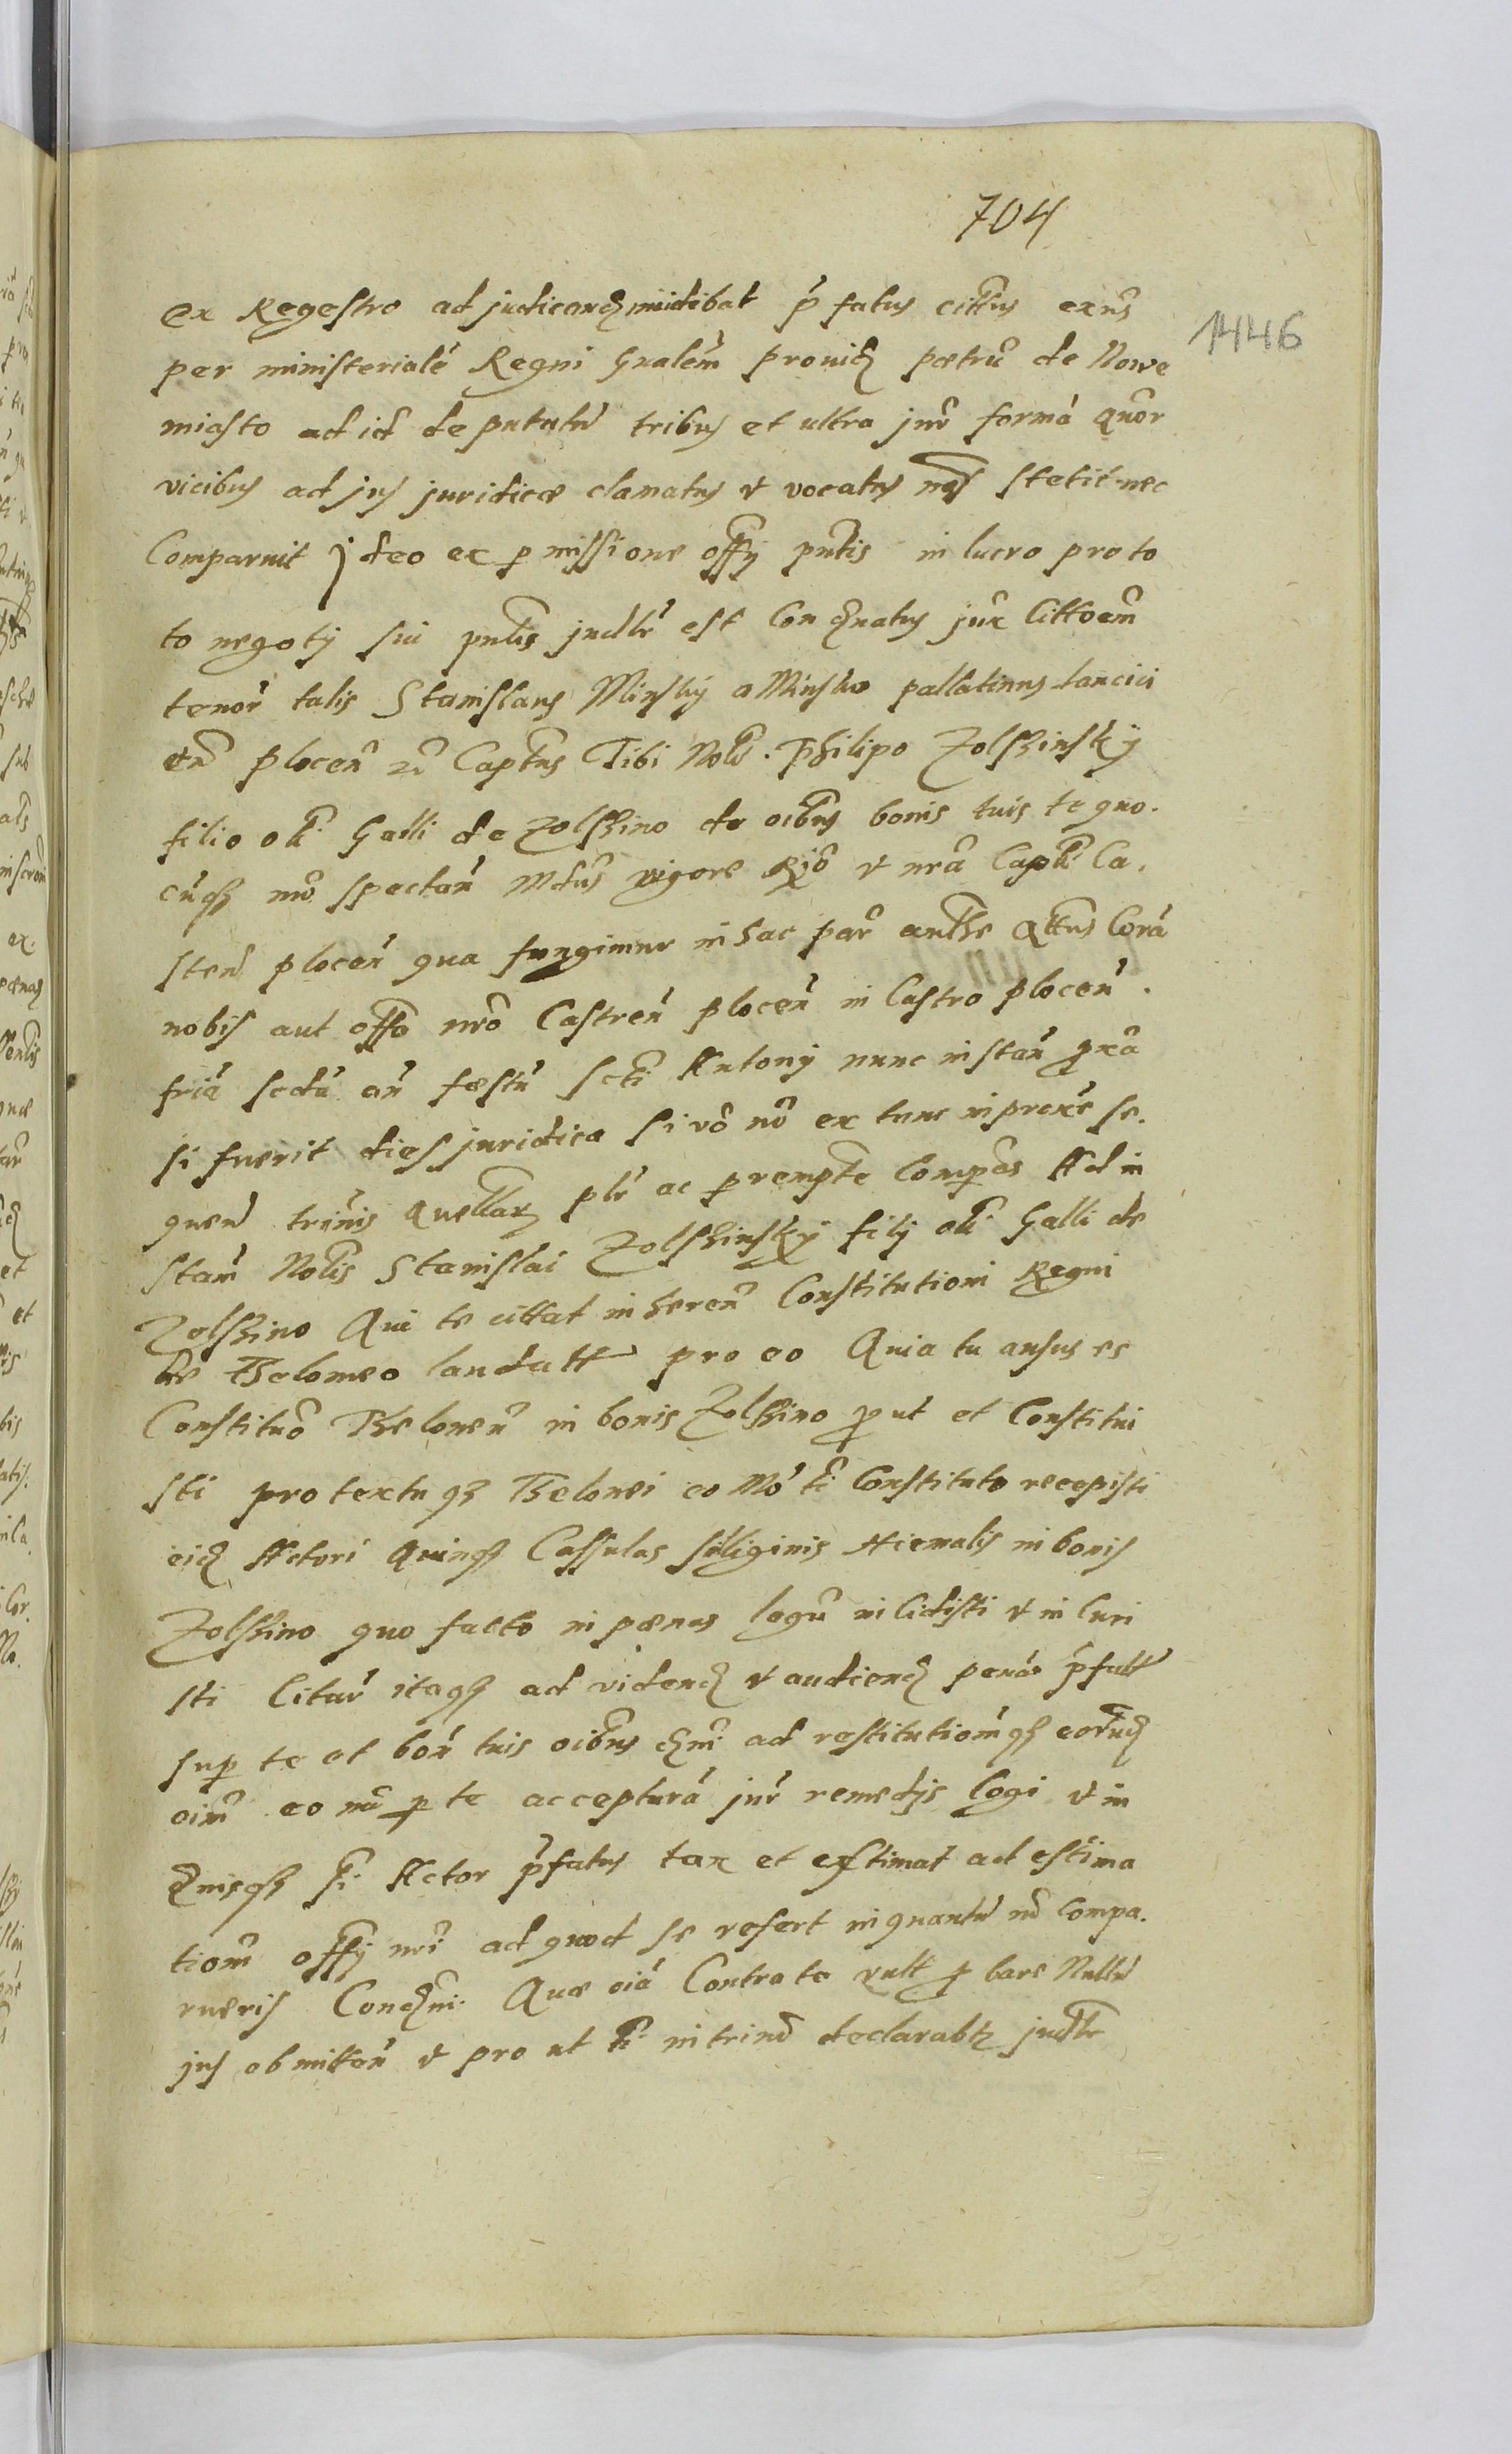 704
1446
ex Regestro ad judicanđ incidebat p̄fatus cittūs exn̄s
per ministerialē Regni Gnālem̄ prouiđ petrū de Nowe
miasto ad id deputatū tribus et ultra jur̄ formā quor̄
vicibus ad jus juridice clamatus et vocatus non stetit nec
Comparuit jdeo ex pmissione offỹ pn̄tis in lucro proto
to negotij sui pn̄tis judlr̄ est Condn̄atus jux̄ Cittōem
tenor̄ talis Stanislaus Minsky a Minsko pallatinus Lancici
en̄ plocen̄ zc̄ Captn̄s Tibi Nobli. Philipo Zolskinsky
filio oli. Galli de Zolskino de oībus bonis tuis te quo.
cūq; mō spectan̄ Mdn̄s vigore Rgiō et nrā Captli Ca.
sten̄ plocen̄ qua fungimur in hac par̄ authē qttn̄s Corā
nobis aut offō nrō Castren̄ plocen̄ in Castro plocen̄.
friā scdā an̄ festū Scti Antonij nunc instan̄ px̄ā
si fuerit dies juridica si vō nō ex tunc in prox̄ē se.
quen̄ trinis Quellar plr̄ ac premptē Compās Ad in
stan̄ Noblis Stanislai Zolskinsky filij oli. Galli de
Zolskino Qui te cittat inheren̄ Constitutioni Regni
de Theloneo laudatt pro eo Quia tu ausus es
Constituō Thelonen̄ in bonis Zolskino put et Constitui
sti protextuq; Thelonei eo Mō ti Constituto recepisti
eiđ Actori Quinq; Cassulas siliginis Hiemalis in bonis
Zolskino quo facto in penas legū incidisti et in Curi
sti Citar̄ itaq; ad videnđ et audienđ penas p̄fatt
sup te et bon̄ tuis oībus đni. ad restitutiom̄q; eorunđ
oīm̄ eo mō p te accepturā jur̄ remedijs Cogi et in
đnisq; si. Actor p̄fatus tax et estimat ad estima
tiom̄ offỹ nri ad quod se refert inquantū nō Compa.
rueris Conđni. Quæ oīa Contra te vult pbare Nullū
jus obmitten̄ et pro ut ti. in trinō declarabt judlr